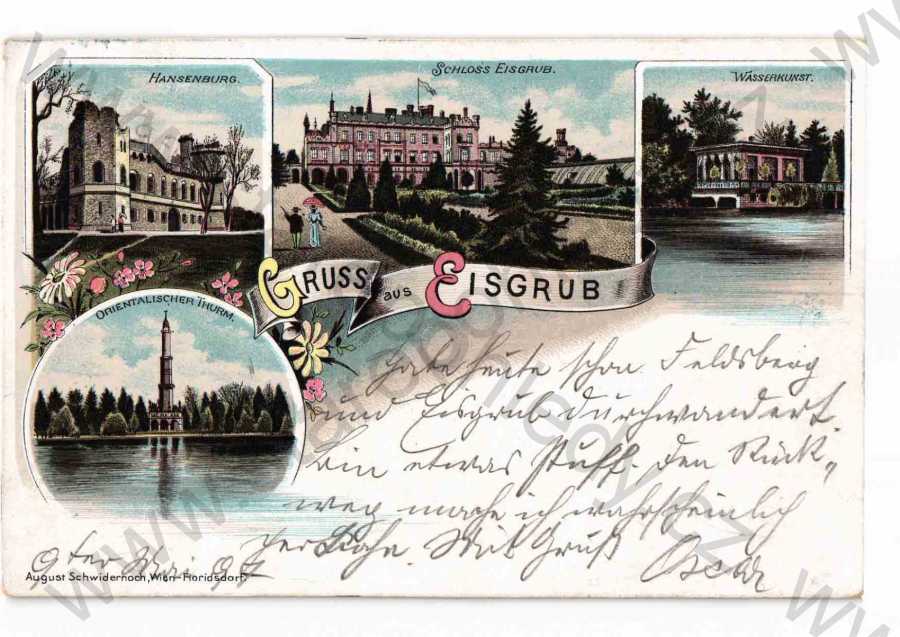 HANSENBURG.
SCHLOSS EISGRUB.
WASSERKUNST.
GRUSS AUS EISGRUB
ORIENTALISCHER THURM.
Habe heute schon Feldsberg
und Eisgrub durchwandert.
Bin etwas . Den Rück-
weg mache ich wahrscheinlich
per Bahn. Mit Gruß
Oscar
9ter Mai 97
August Schwidernoch, Wien-Floridsdorf.